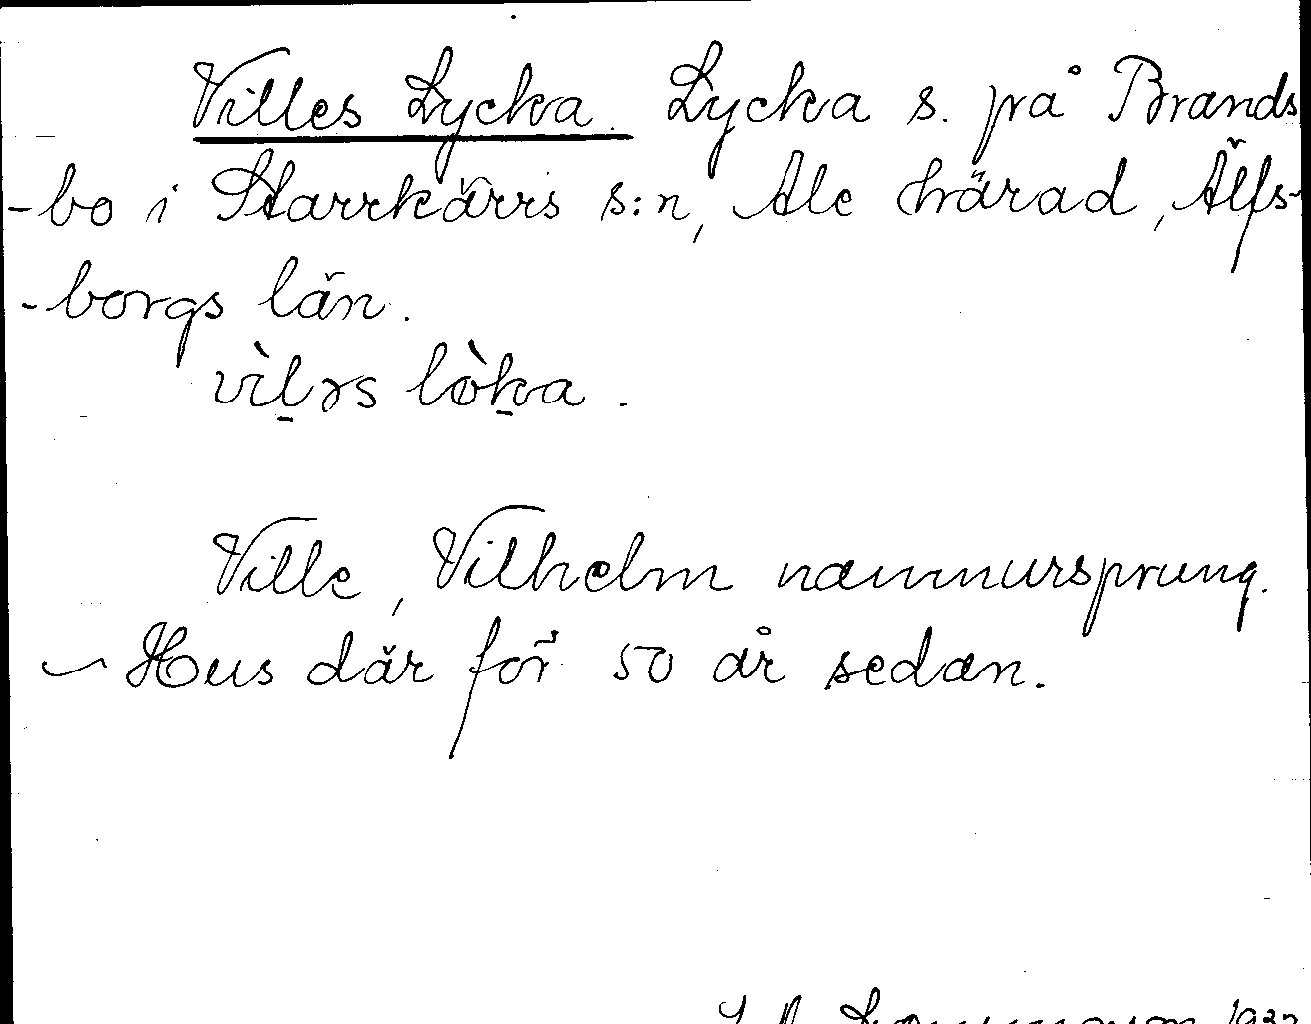 Villes Lycka. Lycka s. på Brands
-bo i Starrkärrs s:n, Ale härad, Älfs-
-borgs län.
vìl̠ɘs lø̀k̠a.
Ville, Vilhelm namnursprung.
~ Hus där för 50 år sedan.